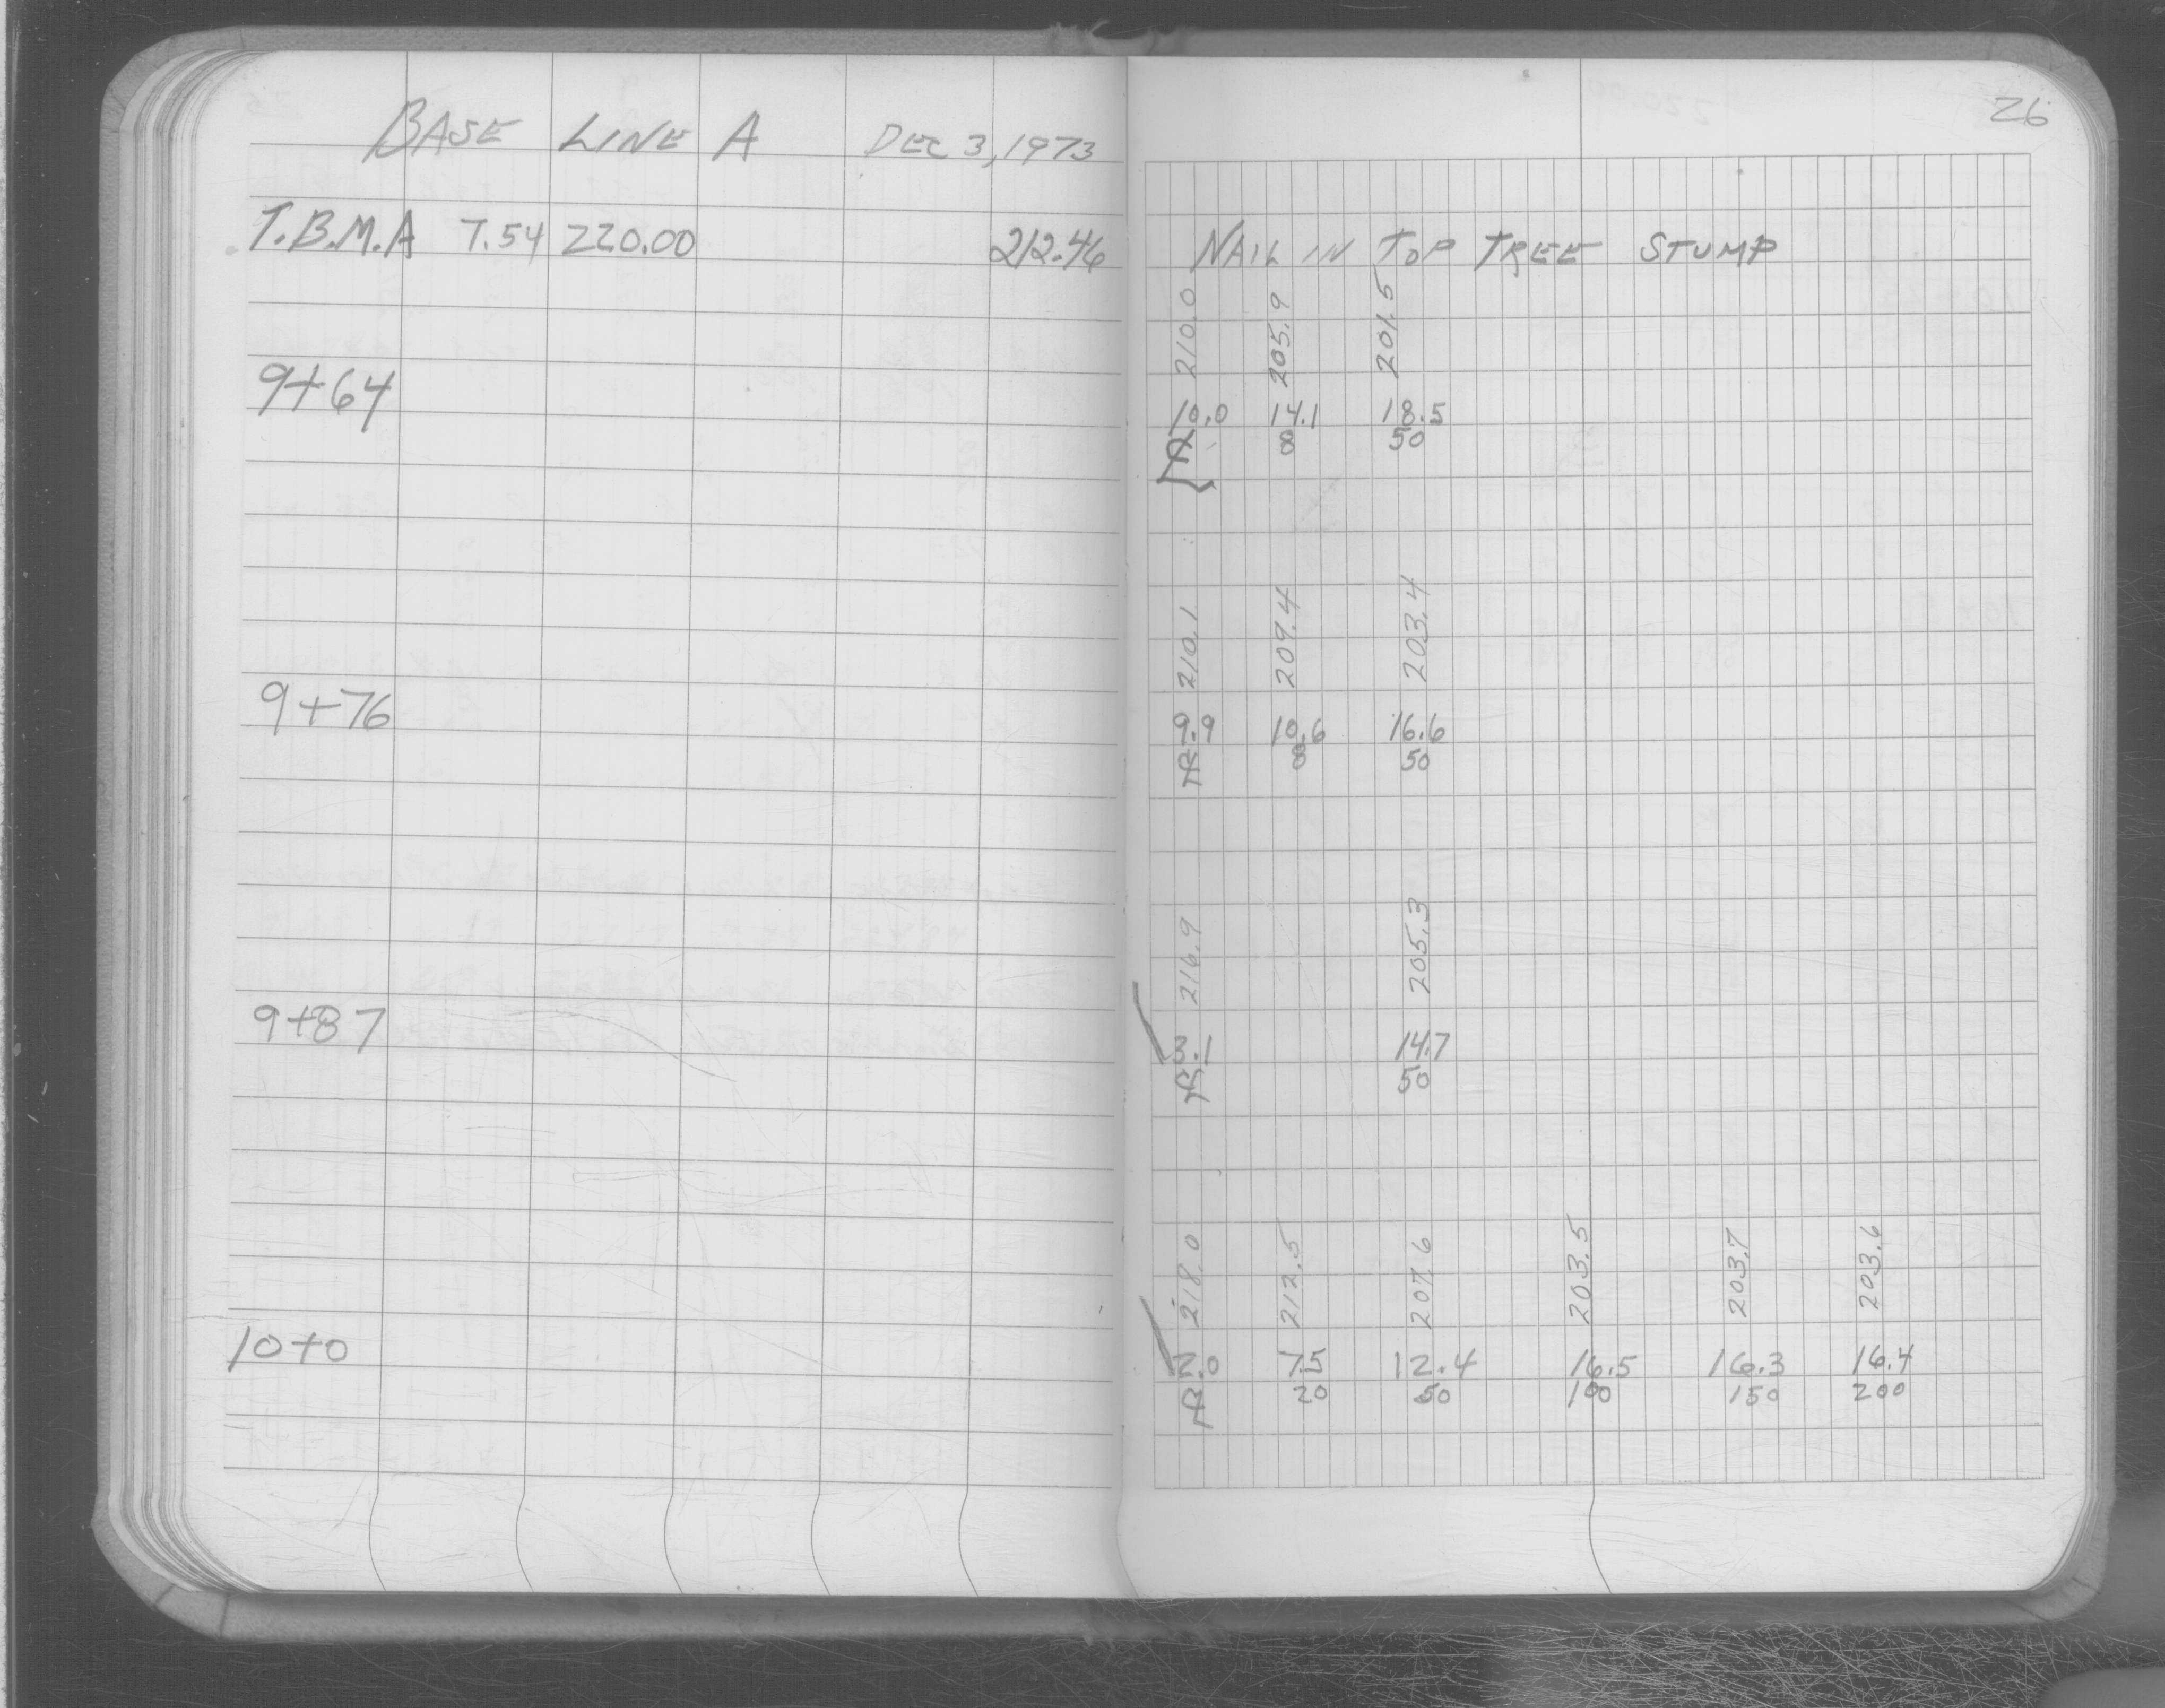 26
BASE LINE A DEC 3, 1973
T.B.M.A 7.54 220.00 212.46 NAIL IN TOP TREE STUMP
210.0 205.9 201.5
9+64 10.0 14.1 18.5
8 50
210.1 209.4 203.4
9+76 9.9 10.6 16.6
8 50
216.9 205.3
9+87 3.1 14.7
50
218.0 212.5 207.6 203.5 203.7 203.6
10+0 2.0 7.5 12.4 16.5 16.3 16.4
20 50 100 150 200